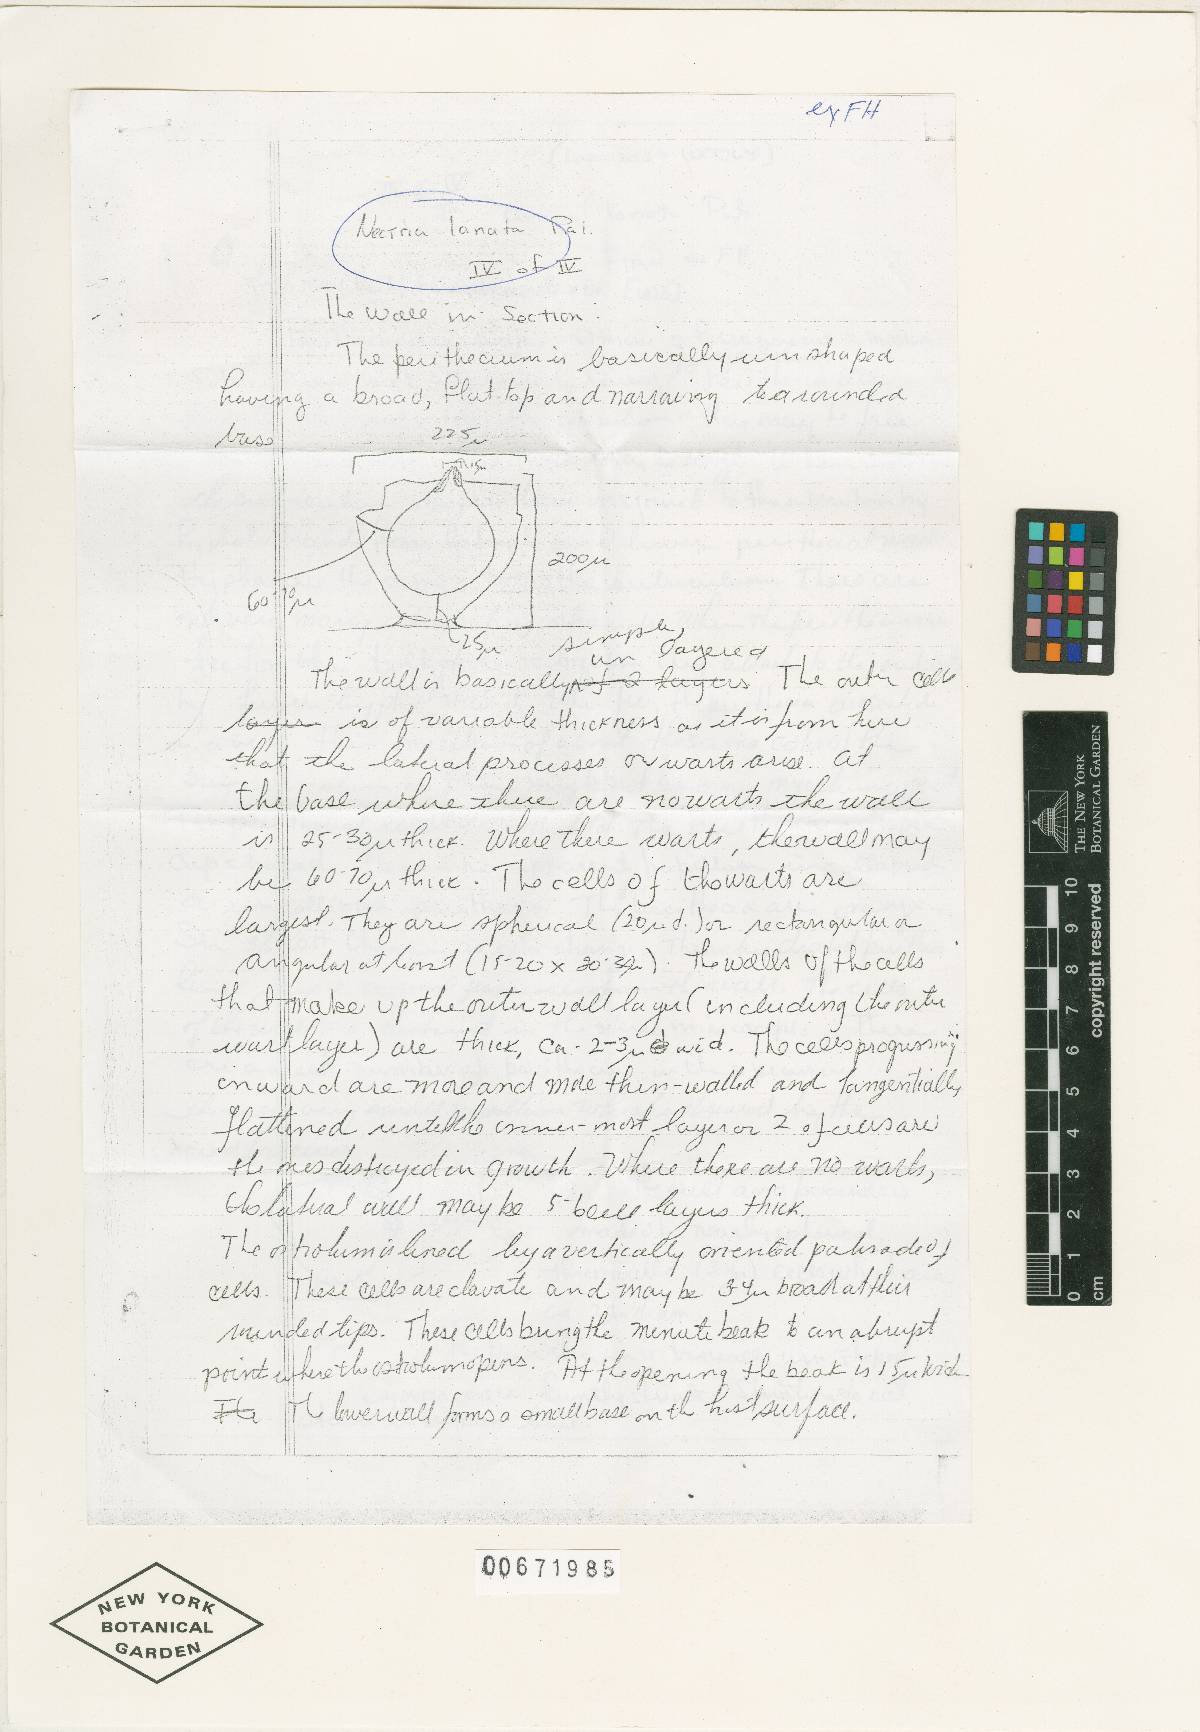 ex FH
Nectria lanata Pat.
IV of IV
The wall in section.
The perithecium is basically urn shaped
having a broad, flat top and narrowing to a rounded
base
225µ
15µ
200µ
60-70µ
25µ
simple,
un layered
The wall is basically of 2 layers. The outer cells
layer is of variable thickness as it is from here
that the lateral processes or warts arise. At
the base where there are no warts the wall
is 25-30µ thick. Where there warts, the wall may
be 60-70µ thick. The cells of the warts are
largest. They are spherical (20µ d.) or rectangular or
angular at least (15-20 x 30- µ). The walls of the cells
that make up the outer wall layer (including the outer
wart layer) are thick, ca. 2-3µ wid. The cells progressing
inward are more and more thin-walled and tangentially
flattened until the inner-most layer or 2 of cells are
the ones destroyed in growth. Where there are no warts,
the lateral wall may be 5- cell layers thick.
The ostiolum is lined by a vertically oriented palisade of
cells. These cells are clavate and may be 3-4µ broad at their
rounded tips. These cells bring the minute beak to an abrupt
point where the ostiolum opens. At the opening the beak is 15µ wide.
The The lower wall forms a small base on the host surface.
00671985
NEW YORK
BOTANICAL
GARDEN
THE NEW YORK
BOTANICAL GARDEN
copyright reserved
10
9
8
7
6
5
4
3
2
1
0
cm